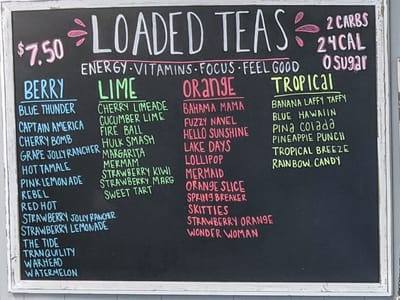 LOADED TEAS
$7.50
2 CARBS
24 CAL
0 SUGAR
ENERGY · VITAMINS · FOCUS · FEEL GOOD
BERRY
BLUE THUNDER
CAPTAIN AMERICA
CHERRY BOMB
GRAPE JOLLY RANCHER
HOT TAMALE
PINK LEMONADE
REBEL
RED HOT
STRAWBERRY JOLLY RANCHER
STRAWBERRY LEMONADE
THE TIDE
TRANQUILITY
WARHEAD
WATERMELON
LIME
CHERRY LIMEADE
CUCUMBER LIME
FIRE BALL
HULK SMASH
MARGARITA
MERMAM
STRAWBERRY KIWI
STRAWBERRY MARG
SWEET TART
ORANGE
BAHAMA MAMA
FUZZY NAVEL
HELLO SUNSHINE
LAKE DAYS
LOLLIPOP
MERMAID
ORANGE SLICE
SPRING BREAKER
SKITTIES
STRAWBERRY ORANGE
WONDER WOMAN
TROPICAL
BANANA LAFFY TAFFY
BLUE HAWAIIN
PINA COLADA
PINEAPPLE PUNCH
TROPICAL BREEZE
RAINBOW CANDY